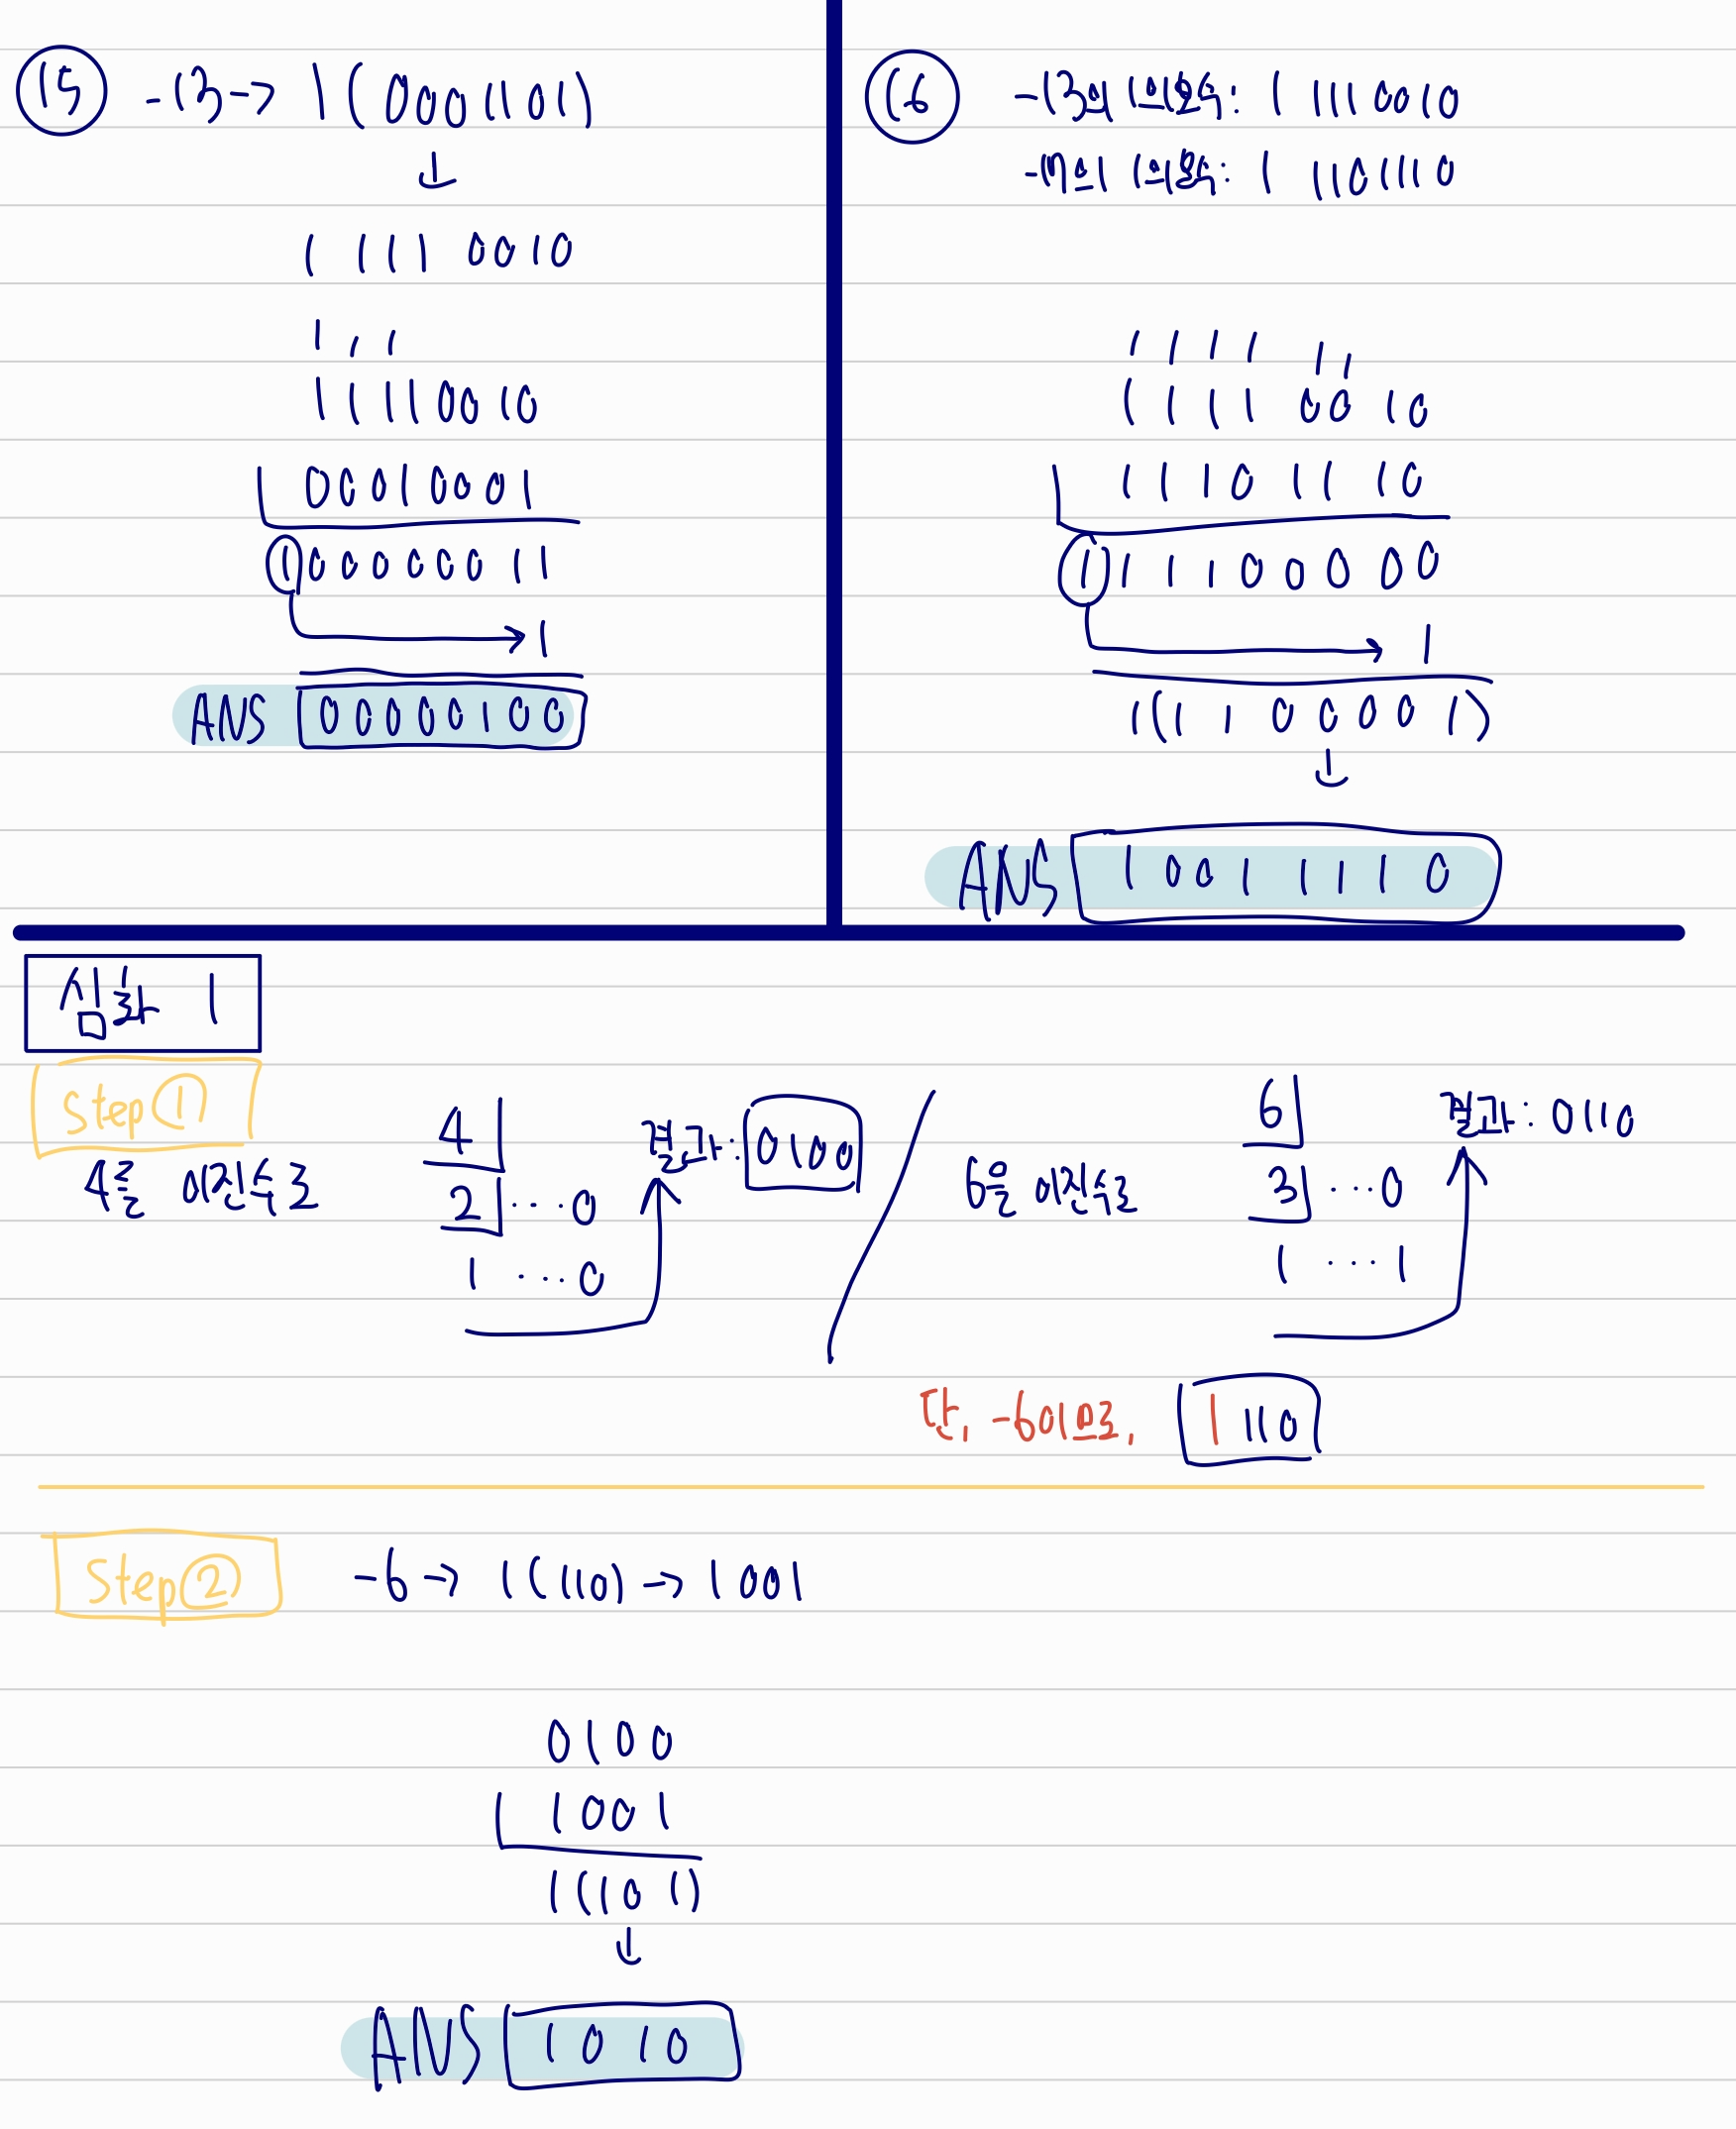 ⑮ -13 → 1(0001101)
↓
1 111 0010
1 1 1
11110010
00010001
100000011
→ 1
ANS 00000100
⑯ -13의 1의보수: 1 1110010
1 1101110
1 1 1 1 1 1
1111 0010
1110 1110
111100000
→ 1
1(1100001)
↓
ANS 1001 1110
심화 1
Step ①
4를 이진수로
4
2 ... 0
1 ... 0
결과: 0100
6을 이진수로
6
3 ... 0
1 ... 1
결과: 0110
단, -6이므로, 1110
Step ②
-6 → 1(110) → 1001
0100
1001
1(101)
↓
ANS 1010